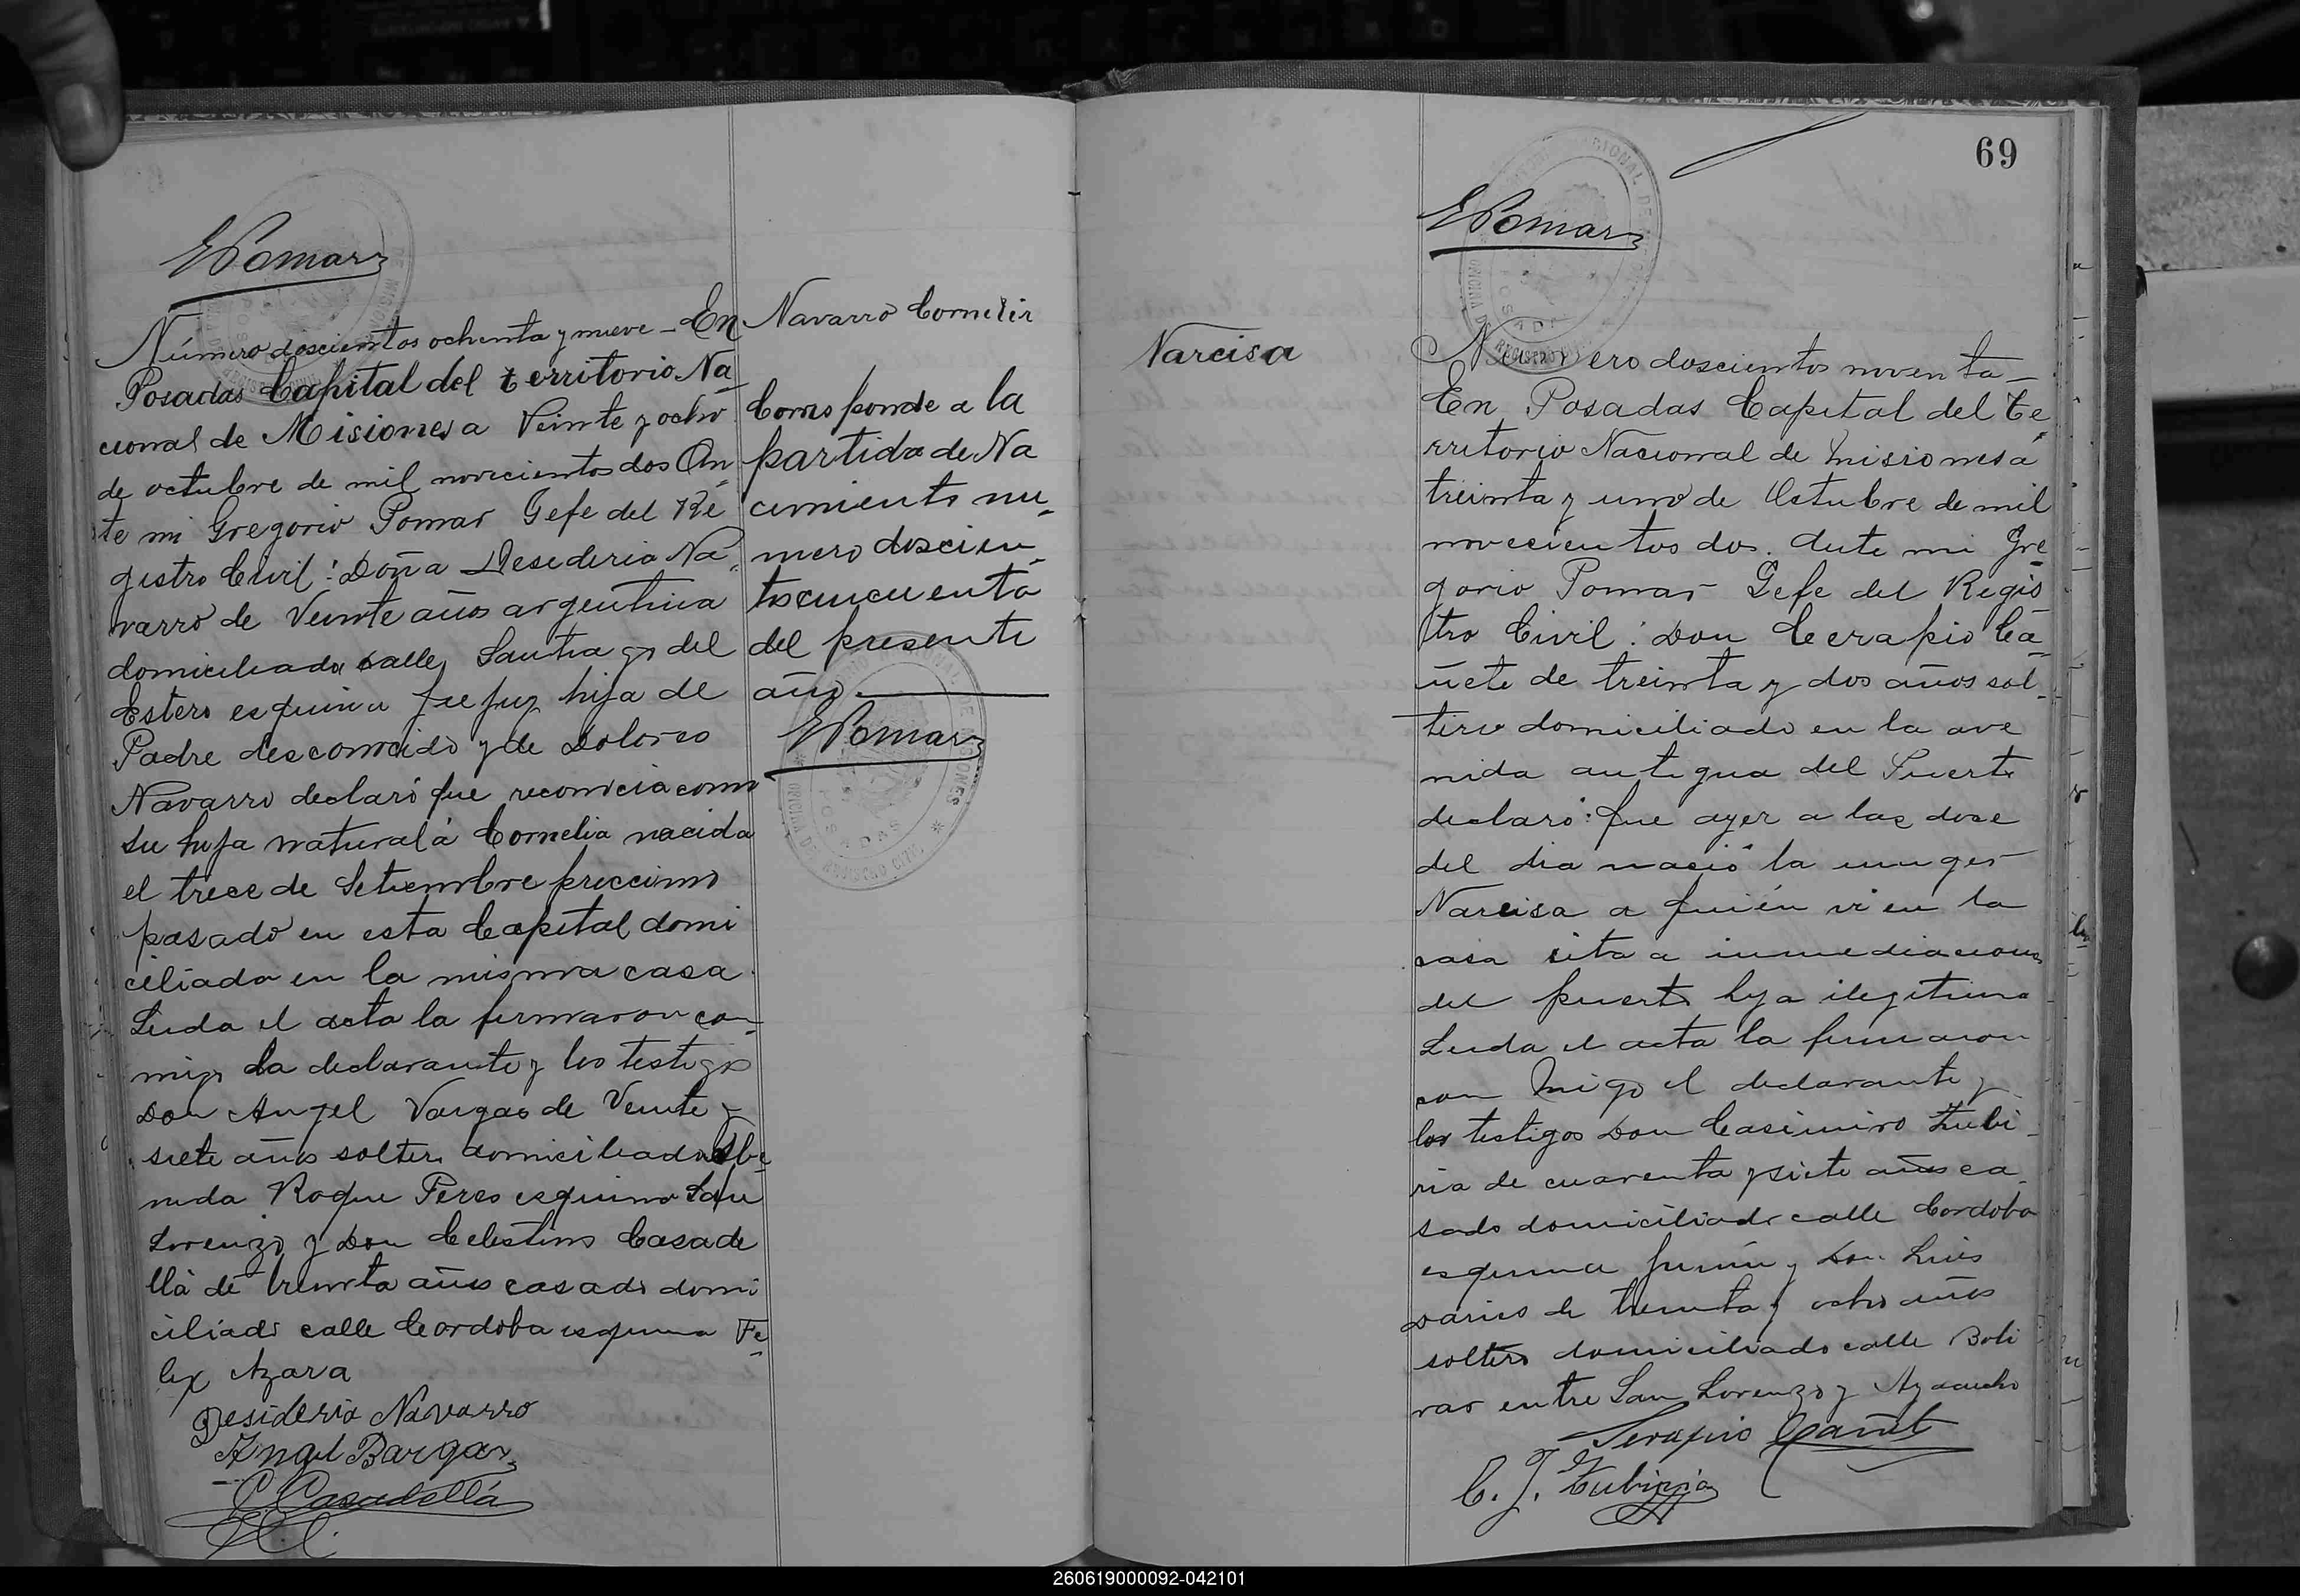 EPomar
Número doscientos ochenta y nueve - En
Posadas Capital del territorio Na
cional de Misiones a Veinte y ocho
de octubre de mil novecientos dos An
te mi Gregorio Pomar Gefe del Re
gistro Civil: Doña Desederia Na
varro de Veinte años argentina
domiciliada calle Santiago del
Estero esquina Jujuy hija de
Padre desconocido y de Dolores
Navarro declaró que reconocia como
su hija natural á Cornelia nacida
el trece de Setiembre proccimo
pasado en esta Capital domi
ciliada en la misma casa
Leida el acta la firmaron con
migo la declarante y los testigos
Don Angel Vargas de Veinte y
siete años soltero domiciliado Abe
nida Roque Peres esquina San
Lorenzo y Don Celestino Casade
llá de treinta años casado domi
ciliado calle Cordoba esquina Fe
lix Azara
Desideria Navarro
Angel Bargas
C Casadellá
Navarro Cornelia
Corresponde a la
partida de Na
cimiento nu
mero doscien
tos cincuenta
del presente
año
EPomar
69
EPomar
Narcisa
Numero doscientos noventa
En Posadas Capital del Te
rritorio Nacional de Misiones á
treinta y uno de Octubre de mil
novecientos dos. Ante mi Gre
gorio Pomar Gefe del Regis
tro Civil: Don Cerapio Ca
ñete de treinta y dos años sol
tero domiciliado en la ave
nida antigua del Puerto
declaró: que ayer a las doce
del dia nació la muger
Narcisa a quién vi en la
casa sita a inmediaciones
del puerto hija ilegitima
Leida el acta la firmaron
con migo el declarante y
los testigos Don Casimiro Zubi
ria de cuarenta y siete años ca
sado domiciliado calle Cordoba
esquina Junin y Don Luis
Darios de treinta y ocho años
soltero domiciliado calle Boli
var entre San Lorenzo y Ayacucho
Serapio Cañete
C. J. Zubiria
260619000092-042101